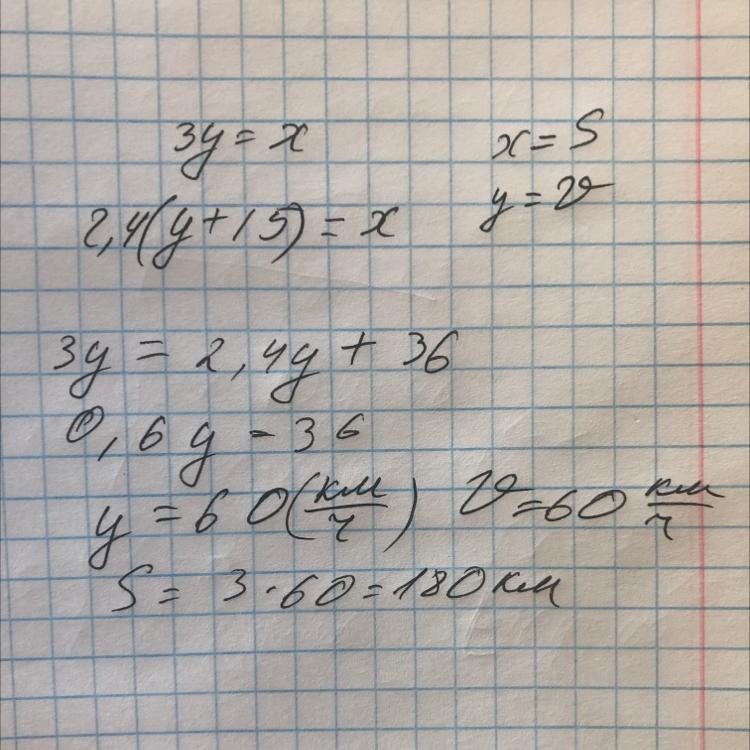 3y = x
x = S
y = v
2,4(y+15) = x
3y = 2,4y + 36
0,6y = 36
y = 60(км/ч) v = 60 км/ч
S = 3·60 = 180 км